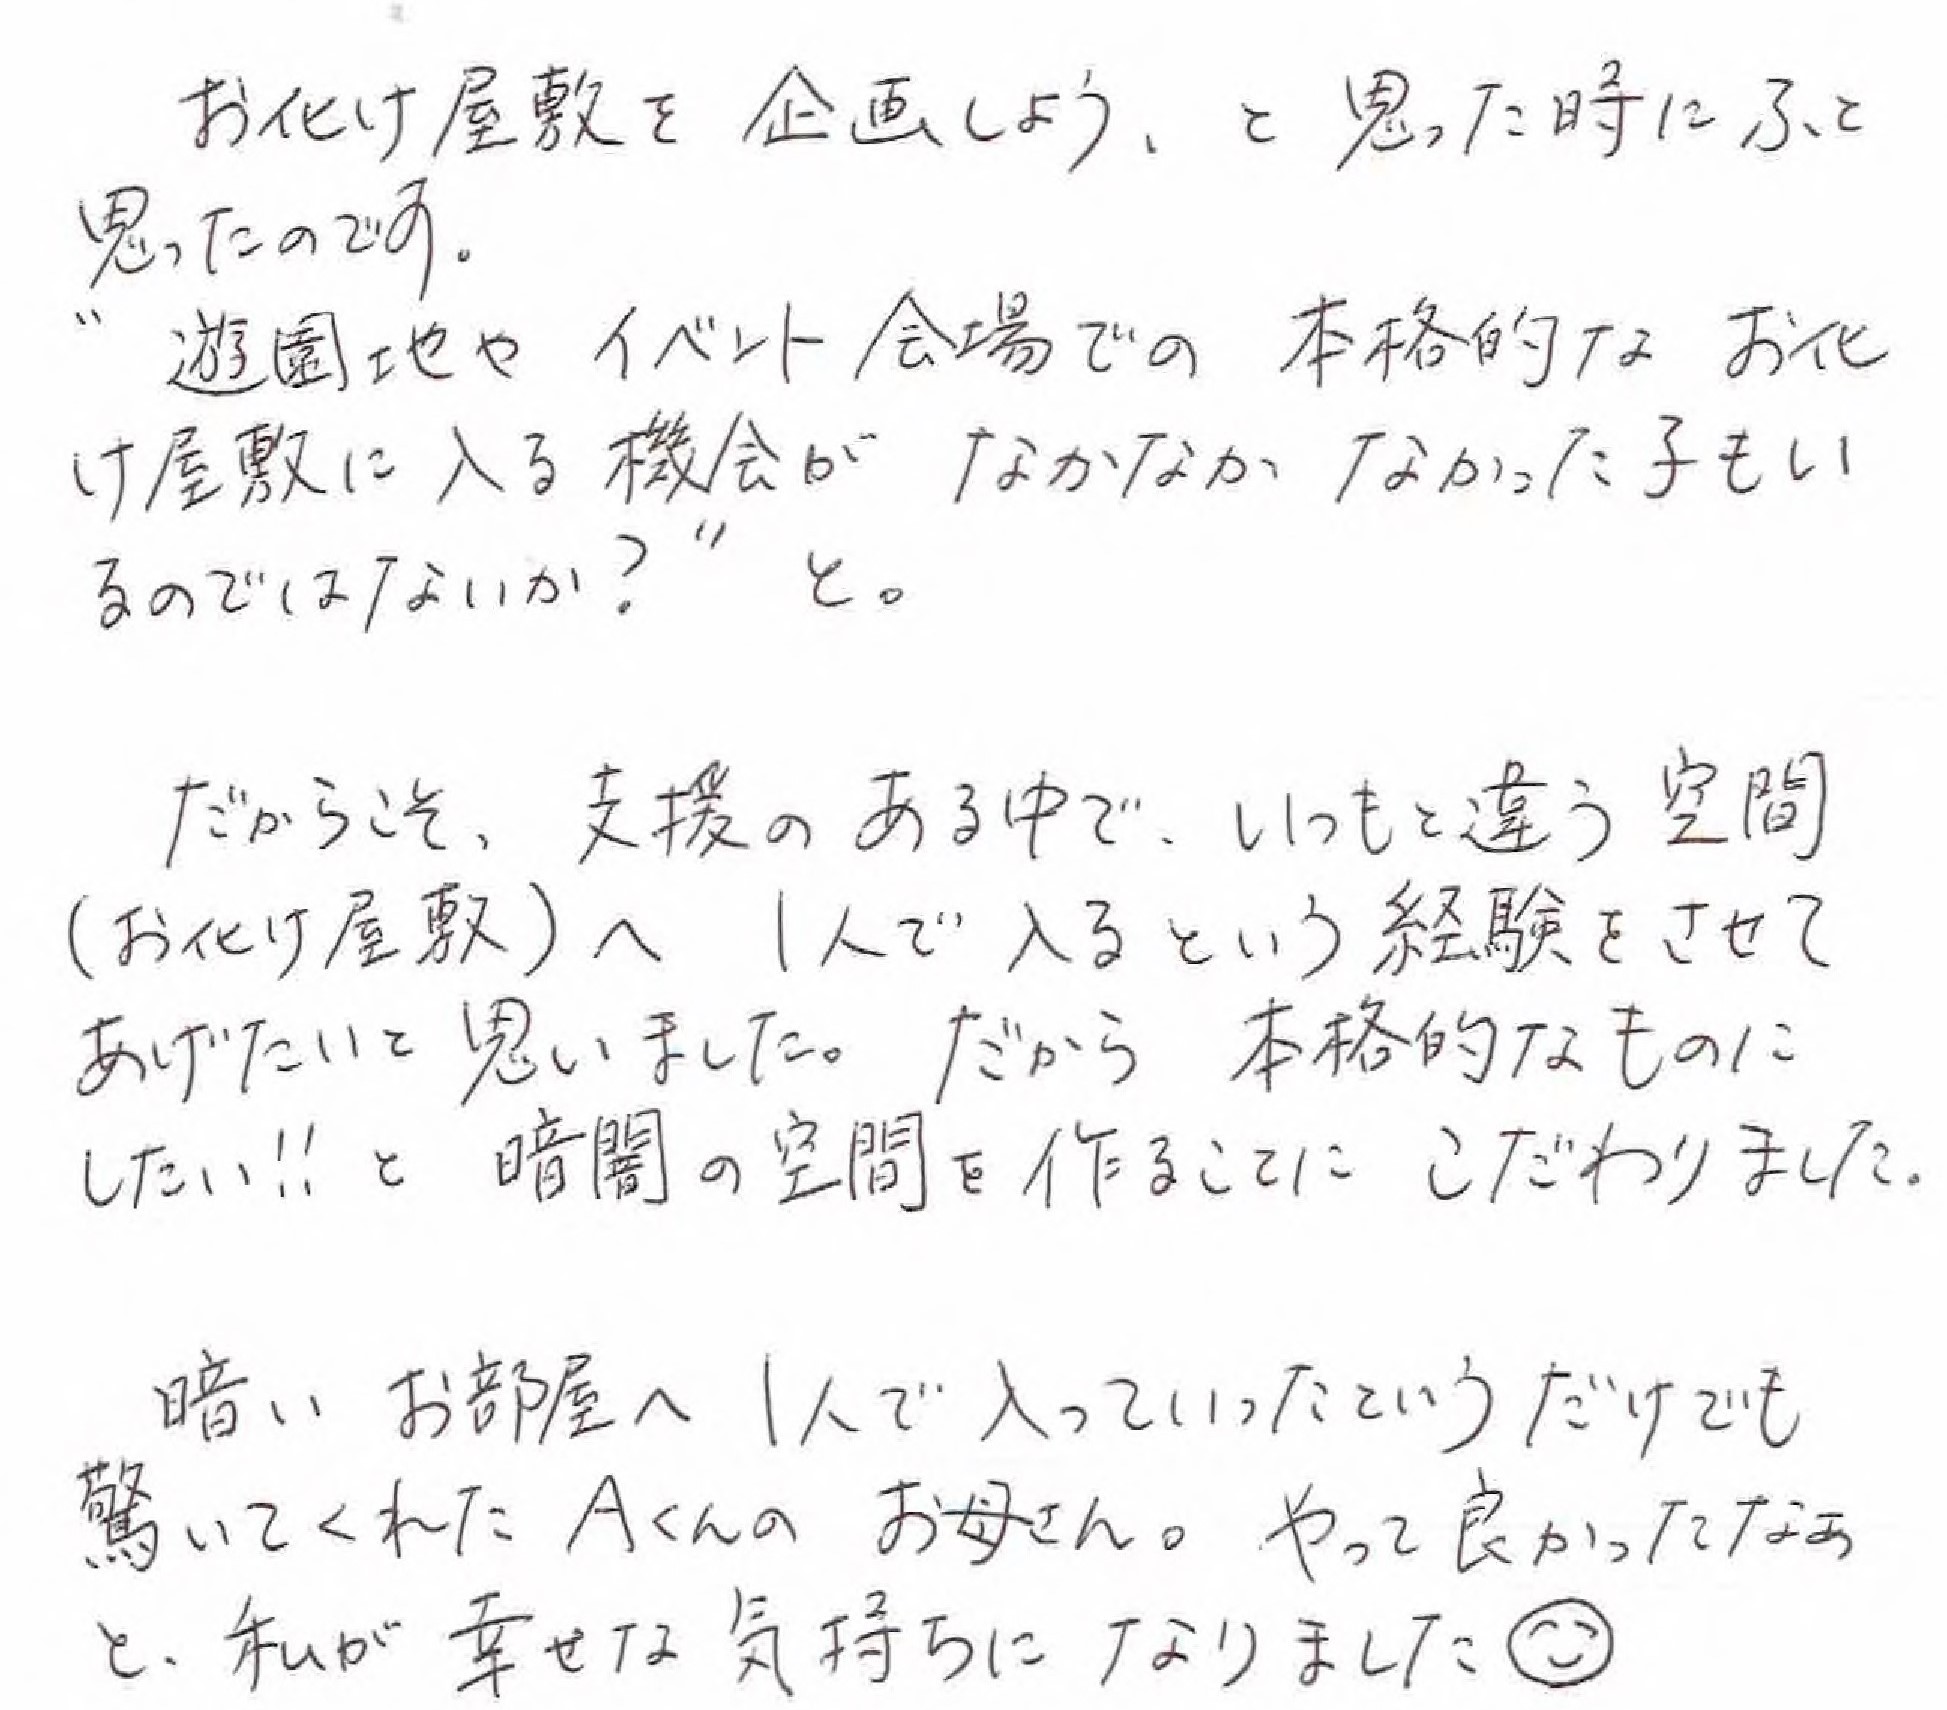 お化け屋敷を企画しよう、と思った時にふと
思ったのです。
"遊園地やイベント会場での本格的なお化
け屋敷に入る機会がなかなかなかった子もい
るのではないか?"と。
だからこそ、支援のある中で、いつもと違う空間
(お化け屋敷)へ1人で入るという経験をさせて
あげたいと思いました。だから本格的なものに
したい!!と暗闇の空間を作ることにこだわりました。
暗いお部屋へ1人で入っていったというだけでも
驚いてくれたAくんのお母さん。やって良かったなぁ
と、私が幸せな気持ちになりました☺